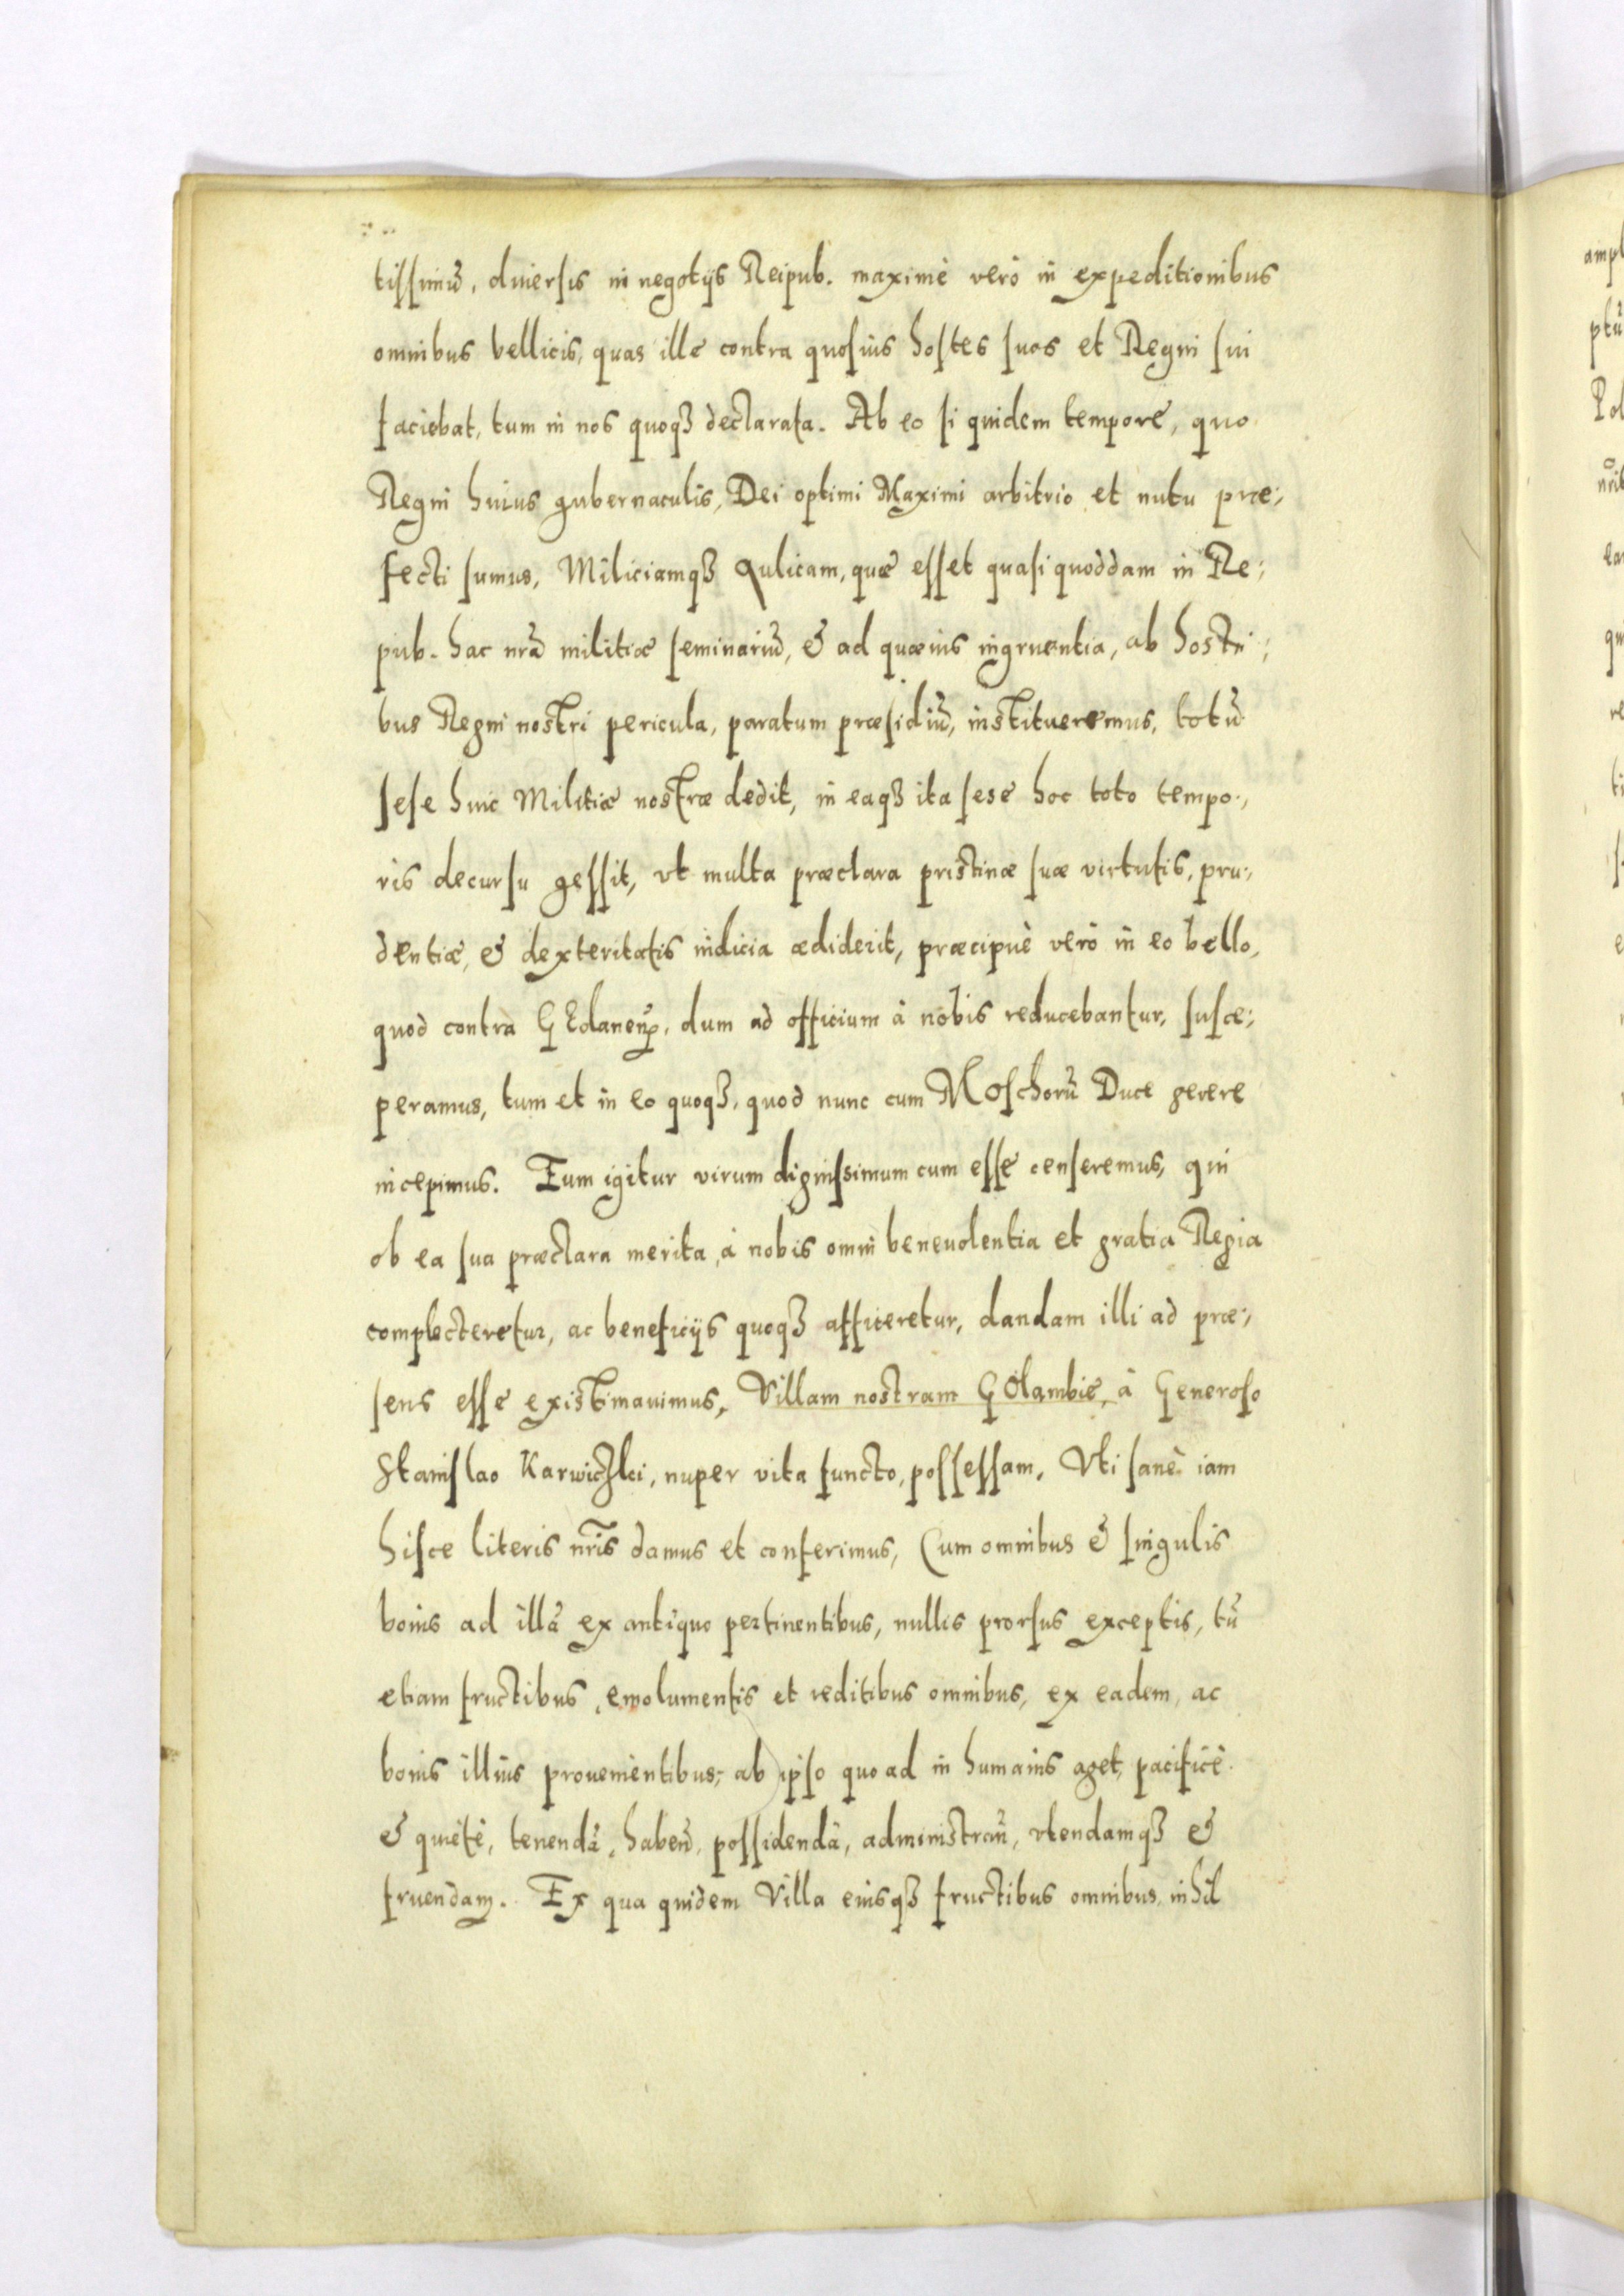 tissimũ, diuersis in negotijs Reipub. maximè verò in expeditionibus
omnibus bellicis, quas ille contra quosuis hostes suos et Regni sui
faciebat, tum in nos quoqȝ declarata. Ab eo si quidem tempore, quo
Regni huius gubernaculis, Dei optimi Maximi arbitrio et nutu præ:,
fecti sumus, Miliciamqȝ Aulicam, quæ esset quasi quoddam in Re:,
pub. hac nrã militiæ seminariũ, & ad quæuis ingruentia, ab hosti:,
bus Regni nostri pericula, paratum præsidiũ, institueremus, totũ
sese huic Militiæ nostræ dedit, in eaqȝ ita sese hoc toto tempo:,
ris decursu gessit, vt multa præclara pristinæ suæ virtutis, pru:,
dentiæ, & dexteritatis indicia ædiderit, præcipuè verò in eo bello,
quod contra Gedanen̄, dum ad officium à nobis reducebantur, susce:,
peramus, tum et in eo quoqȝ, quod nunc cum Moschorũ Duce gerere
incepimus. Eum igitur virum dignissimum cum esse censeremus, qui
ob ea sua præclara merita, à nobis omni beneuolentia et gratia Regia
complecteretur, ac beneficijs quoqȝ afficeretur, dandam illi ad præ:,
sens esse existimauimus, Villam nostram Golambie, à Generoso
Stanislao Karwiczki, nuper vita functo, possessam, Vti sanè iam
hisce literis nr̃is damus et conferimus, Cum omnibus & singulis
bonis ad illã ex antiquo pertinentibus, nullis prorsus exceptis, tũ
etiam fructibus, emolumentis et reditibus omnibus, ex eadem, ac
bonis illius prouenientibus, ab ipso quoad in humanis aget, pacificè
& quietè, tenendã, haben̄, possidendã, administran̄, vtendamqȝ &
fruendam. Ex qua quidem Villa eiusqȝ fructibus omnibus, nihil